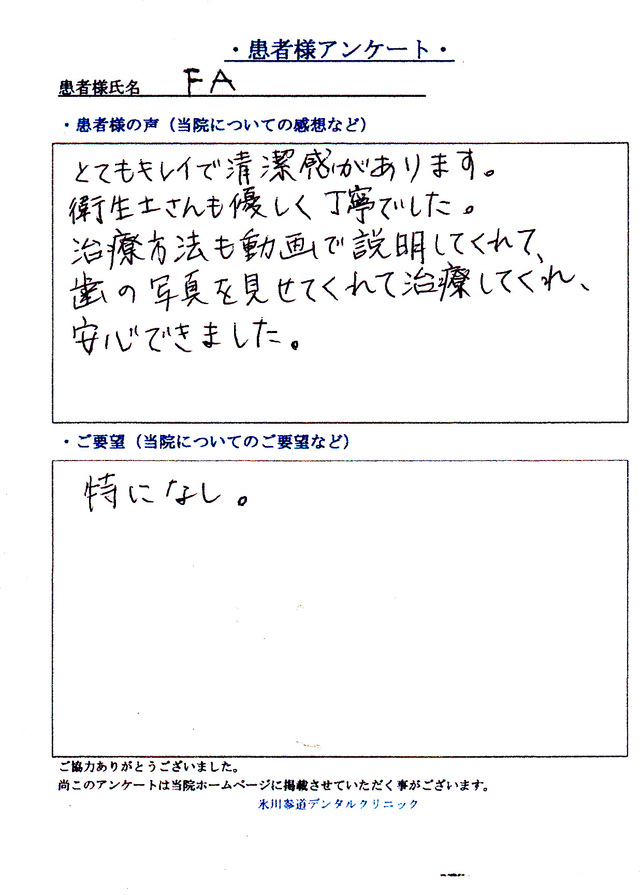 ・患者様アンケート・
患者様氏名 FA
・患者様の声（当院についての感想など）
とてもキレイで清潔感があります。
衛生士さんも優しく丁寧でした。
治療方法も動画で説明してくれて、
歯の写真を見せてくれて治療してくれ、
安心できました。
・ご要望（当院についてのご要望など）
特になし。
ご協力ありがとうございました。
尚このアンケートは当院ホームページに掲載させていただく事がございます。
氷川参道デンタルクリニック